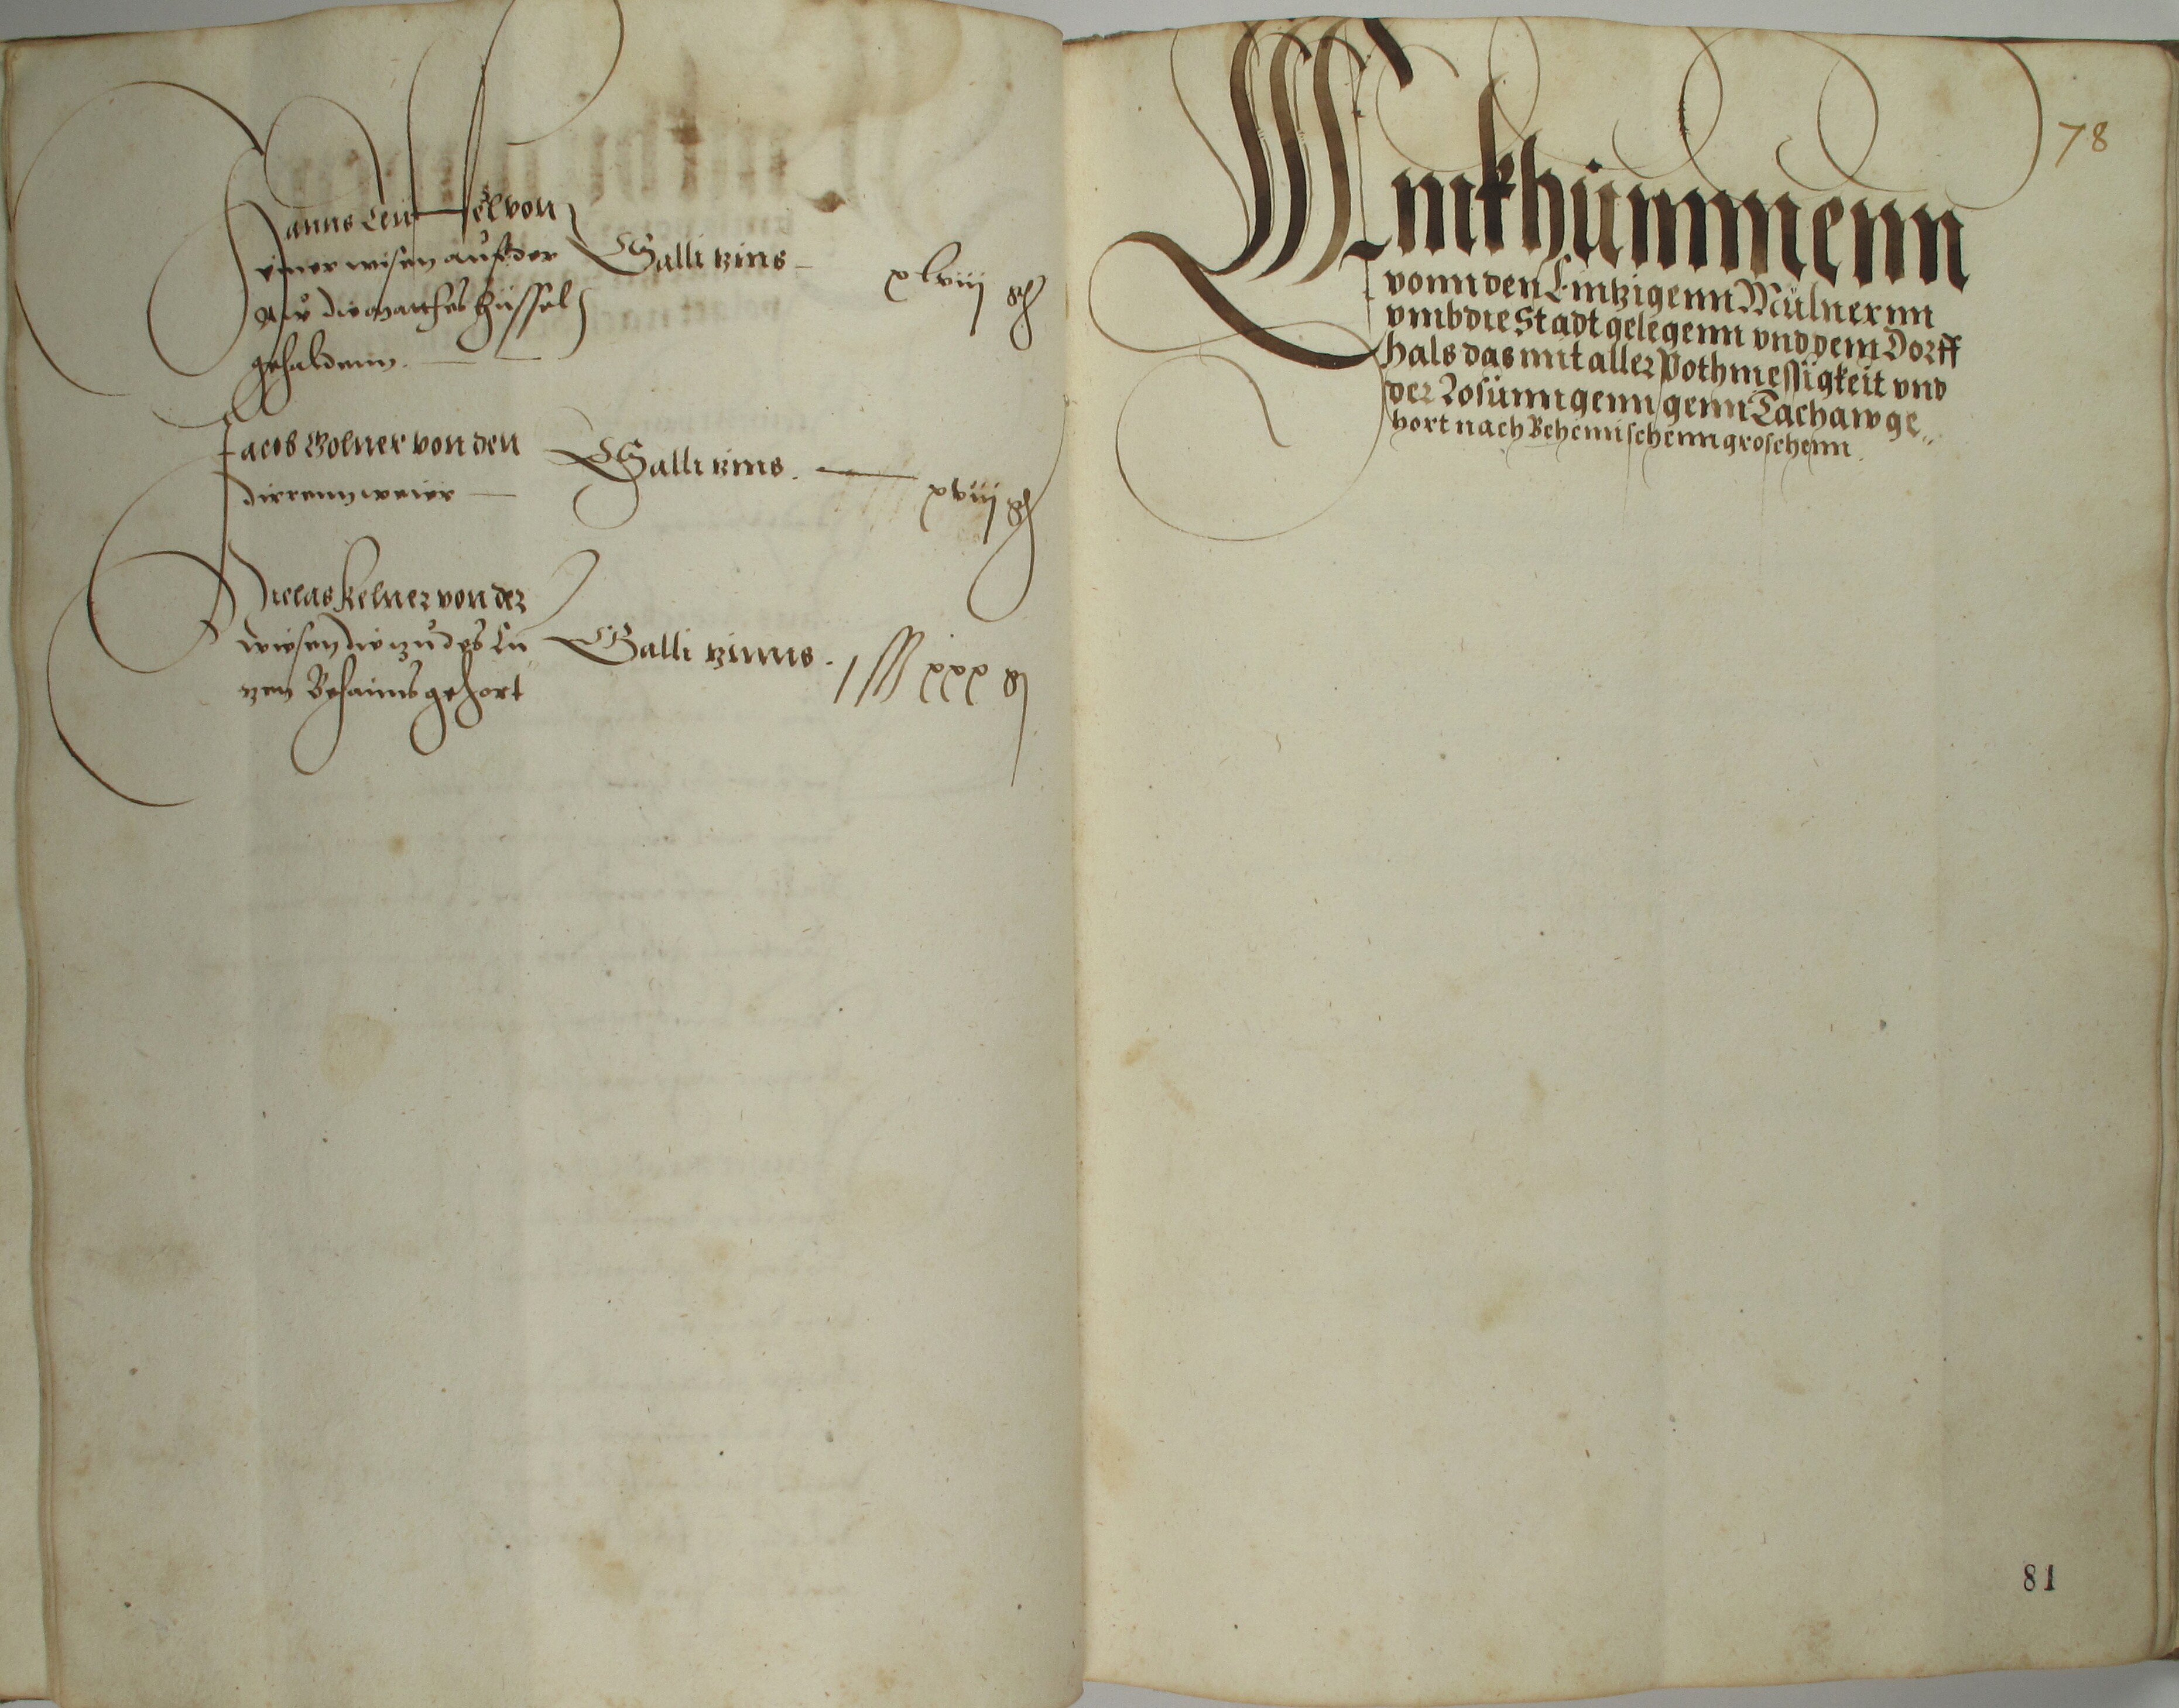 Hanns Leu el von
einer wisen auf der
die Mathes Hüssel
gehaldenn.
Galli zins
xlviii gl
Jacob Zolner von den
dirrenn weier
Galli zins.
xviii gl
Niclas Kelner von der
wiesen die zu des Cu
zen Behaims gehort
Galli zinns.
xxx gl
78
Einkhummenn
vonn den Eintzigenn Mülnernn
vmb die Stadt gelegenn vnd dem Dorff
hals das mit aller Pothmessigkeit vnd
der Losünngenn genn Tachaw ge„
hort nach Behemischenn groschenn.
81